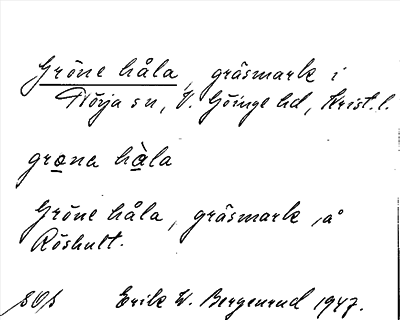 Gröne håla, gräsmark i
Nörja sn, V. Göinge hd, Krist. l.
grǫna hą̀la
Gröne håla, gräsmark, å
Röshult.
SOs Erik W. Bergenrud 1947.